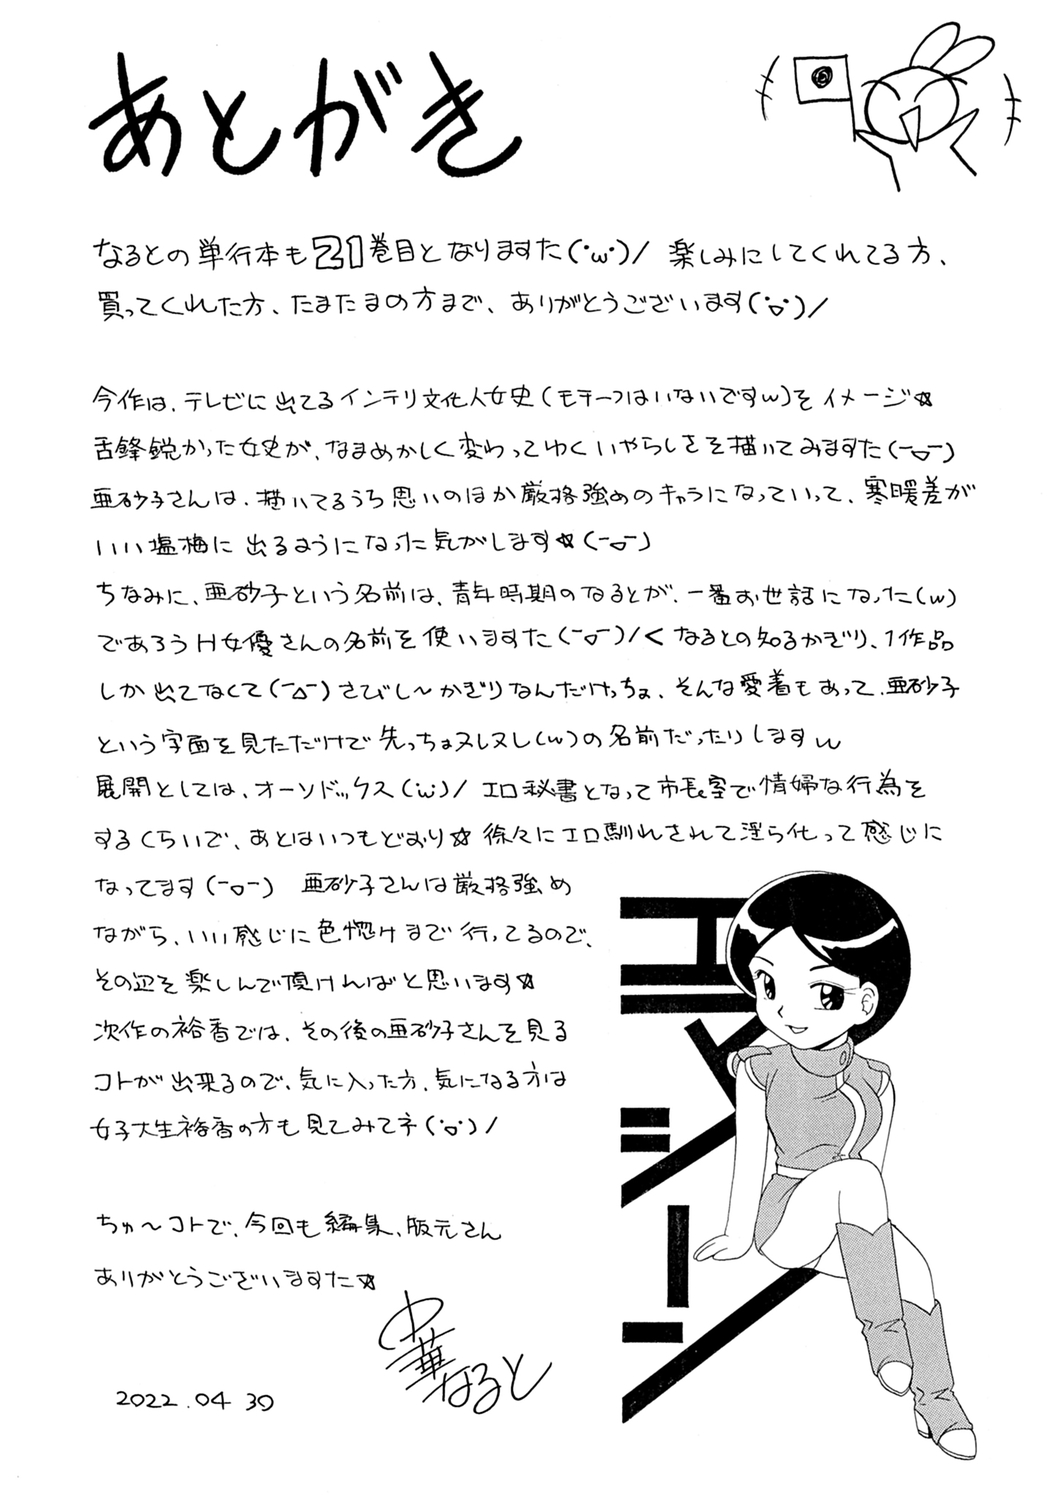 あとがき
なるとの単行本も21巻目となりますた(・ω・)/ 楽しみにしてくれてる方、
買ってくれた方、たまたまの方まで、ありがとうございます(・▽・)/
今作は、テレビに出てるインテリ文化人女史(モチーフはいないですw)をイメージ☆
舌鋒鋭かった女史が、なまめかしく変わってゆくいやらしさを描いてみますた(ー▽ー)
亜砂子さんは、描いてるうち思いのほか厳格強めのキャラになっていって、寒暖差が
いい塩梅に出るようになった気がします☆(ー▽ー)
ちなみに、亜砂子という名前は、青年時期のなるとが、一番お世話になった(w)
であろうH女優さんの名前を使いますた(ー▽ー)/くなるとの知るかぎり、1作品
しか出てなくて(ー△ー)さびし〜かぎりなんだけっちょ、そんな愛着もあって、亜砂子
という字面を見ただけで先っちょヌレヌレ(w)の名前だったりしますw
展開としては、オーソドックス(・ω・)/ エロ秘書となって市長室で情婦な行為を
するくらいで、あとはいつもどおり☆徐々にエロ馴れされて淫ら化って感じに
なってます(ー▽ー) 亜砂子さんは厳格強め
ながら、いい感じに色惚けまで行ってるので、
その辺を楽しんで頂ければと思います☆
次作の裕香では、その後の亜砂子さんを見る
コトが出来るので、気に入った方、気になる方は
女子大生裕香の方も見てみてネ(・▽・)/
ちゅ〜コトで、今回も編集、版元さん
ありがとうございますた☆
中華なると
2022.04 30
エマシーン